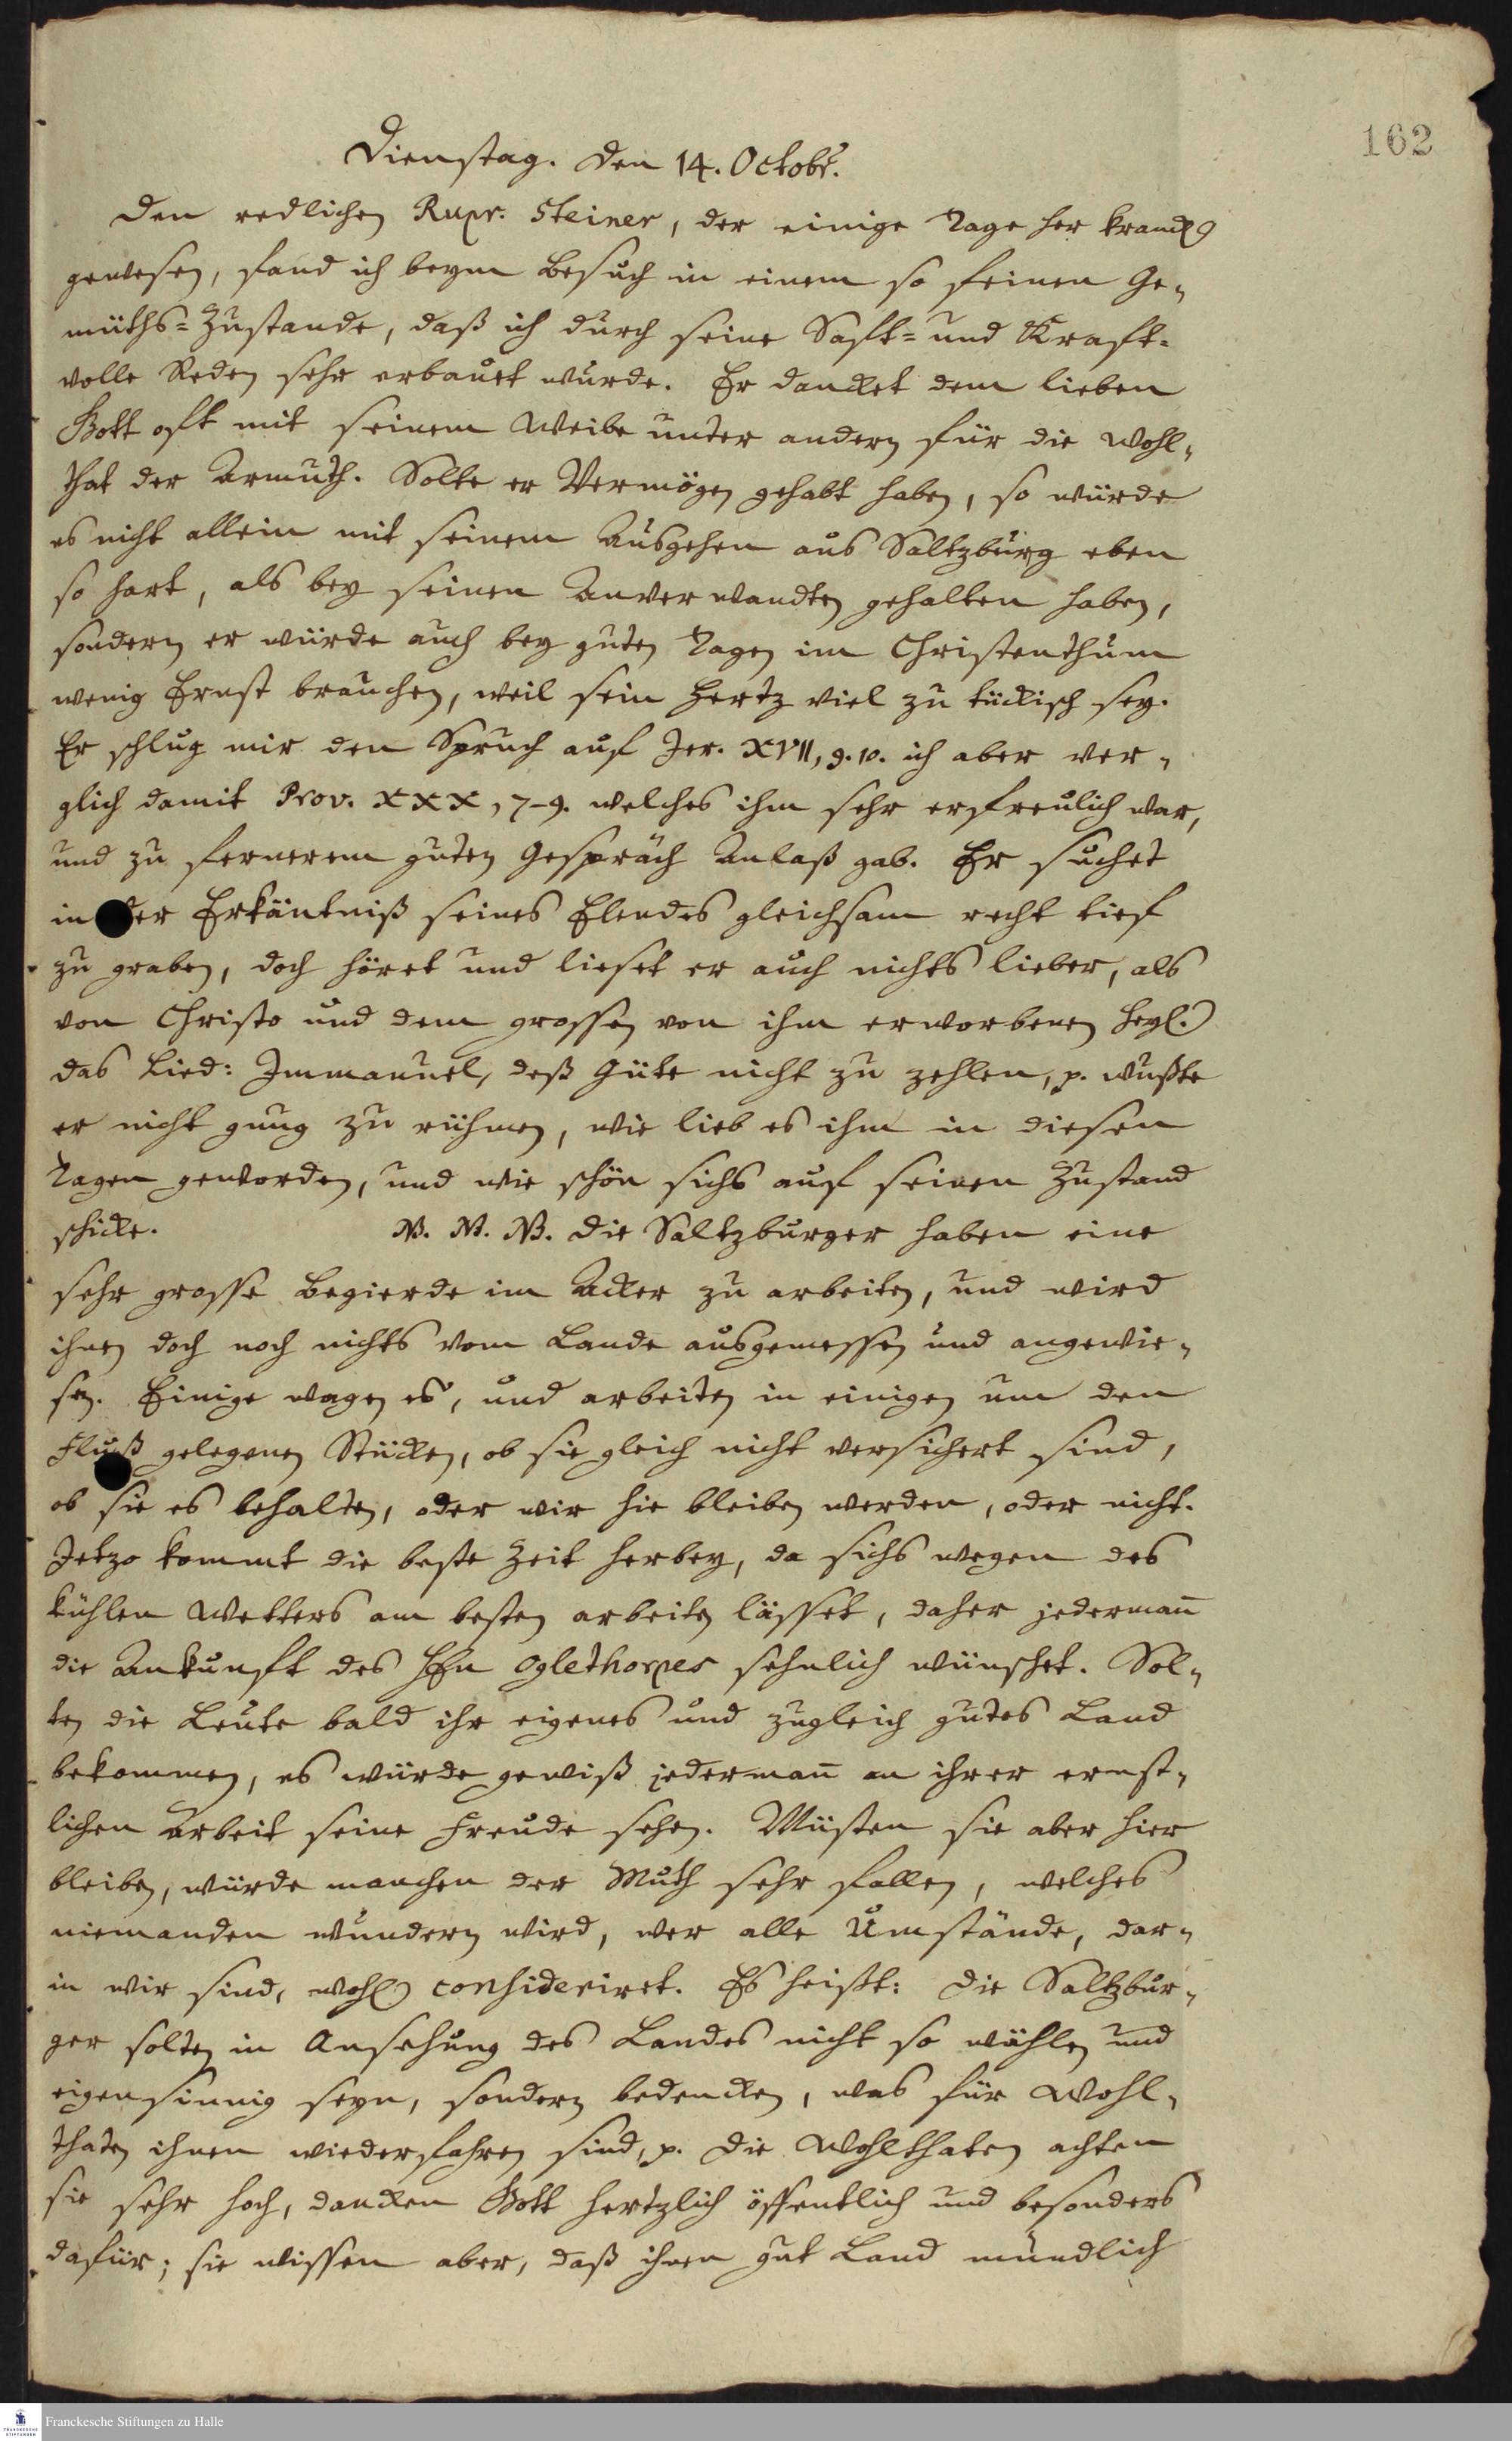 162
Dienstag. den 14. Octobr.
Den redlichen Rupr. Steiner, der einige Tage her kranck
gewesen, fand ich beym Besuch in einem so feinen Ge-
müths-Zustande, daß ich durch seine Saft- und Kraft-
volle Reden sehr erbauet wurde. Er dancket dem lieben
Gott oft mit seinem Weibe unter andern für die Wohl-
that der Armuth. Solte er Vermögen gehabt haben, so würde
es nicht allein mit seinem Ausgehen aus Saltzburg eben
so hart, als bey seinen Anverwandten gehalten haben,
sondern er würde auch bey guten Tagen im Christenthum
wenig Ernst brauchen, weil sein Hertz viel zu tückisch sey.
Er schlug mir den Spruch auf Jer. XVII, 9. 10. ich aber ver-
glich damit Prov. XXX, 7-9. welches ihm sehr erfreulich war,
und zu fernerem guten Gespräch Anlaß gab. Er suchet
in der Erkäntniß seines Elendes gleichsam recht tief
zu graben, doch höret und lieset er auch nichts lieber, als
von Christo und dem grossen von ihm erworbenen Heyl.
das Lied: Immanuel, deß Güte nicht zu zehlen, p. wußte
er nicht gnug zu rühmen, wie lieb es ihm in diesen
Tagen geworden, und wie schön sichs auf seinen Zustand
schicke. N. N. N. Die Saltzburger haben eine
sehr grosse Begierde im Acker zu arbeiten, und wird
ihnen doch noch nichts vom Lande ausgemessen und angewie-
sen. Einige wagen es, und arbeiten in einigen um den
Fluß gelegenen Stücken, ob sie gleich nicht versichert sind,
ob sie es behalten, oder wir hie bleiben werden, oder nicht.
Jetzo kommt die beste Zeit herbey, da sichs wegen des
kühlen Wetters am besten arbeiten lässet, daher jederman̄
die Ankunft des HEn Oglethorpes sehnlich wünschet. Sol-
ten die Leute bald ihr eigenes und zugleich gutes Land
bekommen, es würde gewiß jederman̄ an ihrer ernst-
lichen Arbeit seine Freude sehen. Müsten sie aber hier
bleiben, würde manchen der Muth sehr fallen, welches
niemanden wundern wird, wer alle Umstände, dar-
in wir sind, wohl consideriret. Es heißt: Die Saltzbur-
ger solten in Ansehung des Landes nicht so wählen und
eigensinnig seyn, sondern bedencken, was für Wohl-
thaten ihnen wiederfahren sind, p. Die Wohlthaten achten
sie sehr hoch, dancken Gott hertzlich öffentlich und besonders
dafür; sie wissen aber, daß ihnen gut Land mündlich
Franckesche Stiftungen zu Halle